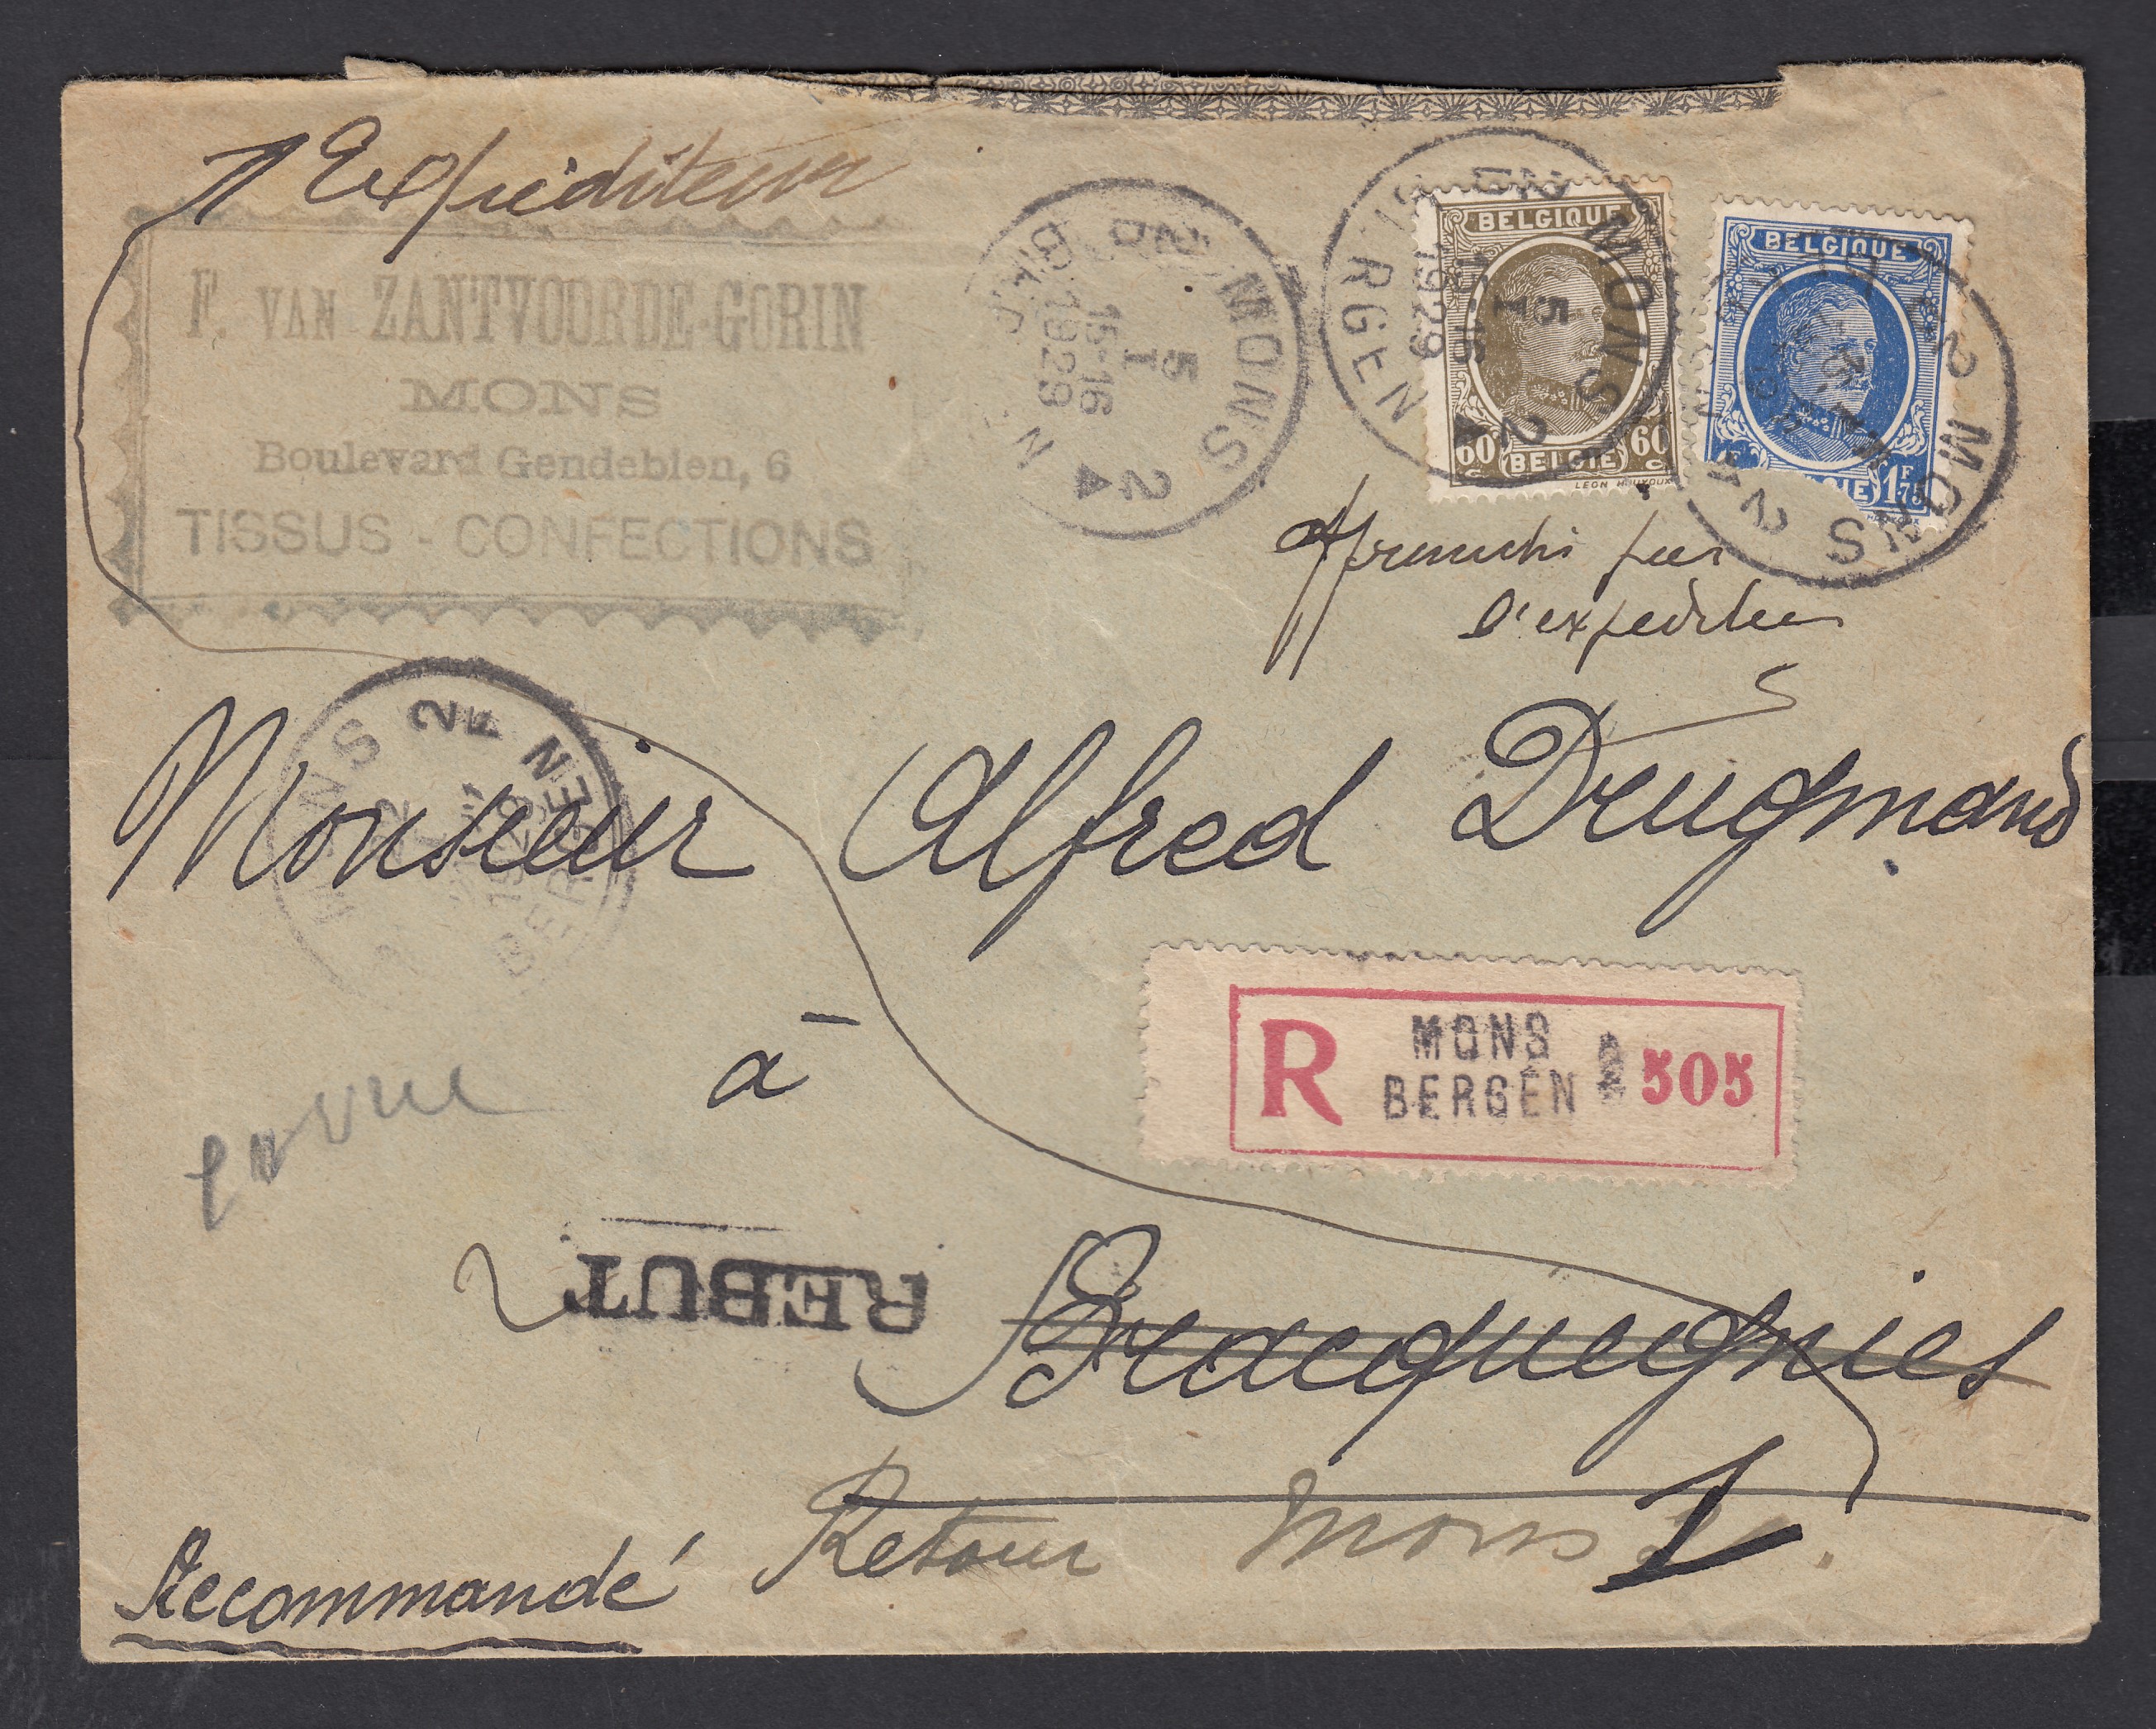 Expéditeur
F. VAN ZANTVOORDE-GORIN
MONS
Boulevard Gendebien, 6
TISSUS - CONFECTIONS
2D MONS 2D
5
I
15-16
1929
MONS 2
5
I
15-16
1929
BERGEN
BELGIQUE
60 60
c c
BELGIE
BELGIQUE
1F75
MONS
Affranchi par
l'expéditeur
MONS 2
1929
BERGEN
Monsieur Alfred Drugmand
à
R MONS
BERGEN 2 505
REBUT
Bracquegnies
Retour Mons 1
Recommandé